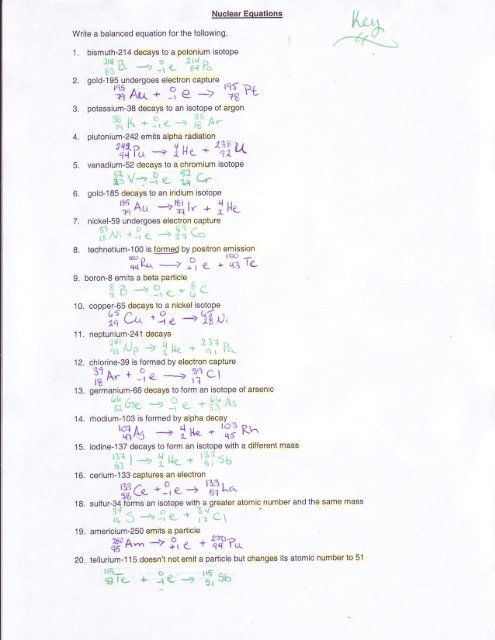 Nuclear Equations
Key
Write a balanced equation for the following.
1. bismuth-214 decays to a polonium isotope
²¹⁴₈₃Bi → ⁰₋₁e ²¹⁴₈₄Po
2. gold-195 undergoes electron capture
¹⁹⁵₇₉Au + ⁰₋₁e → ¹⁹⁵₇₈Pt
3. potassium-38 decays to an isotope of argon
³⁸₁₉K + ⁰₋₁e → ³⁸₁₈Ar
4. plutonium-242 emits alpha radiation
²⁴²₉₄Pu → ⁴₂He + ²³⁸₉₂U
5. vanadium-52 decays to a chromium isotope
⁵²₂₃V → ⁰₋₁e ⁵²₂₄Cr
6. gold-185 decays to an iridium isotope
¹⁸⁵₇₉Au → ¹⁸¹₇₇Ir + ⁴₂He
7. nickel-59 undergoes electron capture
⁵⁹₂₈Ni + ⁰₋₁e → ⁵⁹₂₇Co
8. technetium-100 is formed by positron emission
¹⁰⁰₄₄Ru → ⁰₊₁e + ¹⁰⁰₄₃Tc
9. boron-8 emits a beta particle
⁸₅B → ⁰₋₁e + ⁸₆C
10. copper-65 decays to a nickel isotope
⁶⁵₂₉Cu + ⁰₋₁e → ⁶⁵₂₈Ni
11. neptunium-241 decays
²⁴¹₉₃Np → ⁴₂He + ²³⁷₉₁Pa
12. chlorine-39 is formed by electron capture
³⁹₁₈Ar + ⁰₋₁e → ³⁹₁₇Cl
13. germanium-66 decays to form an isotope of arsenic
⁶⁶₃₂Ge → ⁰₋₁e + ⁶⁶₃₃As
14. rhodium-103 is formed by alpha decay
¹⁰⁷₄₇Ag → ⁴₂He + ¹⁰³₄₅Rh
15. iodine-137 decays to form an isotope with a different mass
¹³⁷₅₃I → ⁴₂He + ¹³³₅₁Sb
16. cerium-133 captures an electron
¹³³₅₈Ce + ⁰₋₁e → ¹³³₅₇La
18. sulfur-34 forms an isotope with a greater atomic number and the same mass
³⁴₁₆S → ⁰₋₁e + ³⁴₁₇Cl
19. americium-250 emits a particle
²⁵⁰₉₅Am → ⁰₊₁e + ²⁵⁰₉₄Pu
20. tellurium-115 doesn't not emit a particle but changes its atomic number to 51
¹¹⁵₅₂Te + ⁰₋₁e → ¹¹⁵₅₁Sb